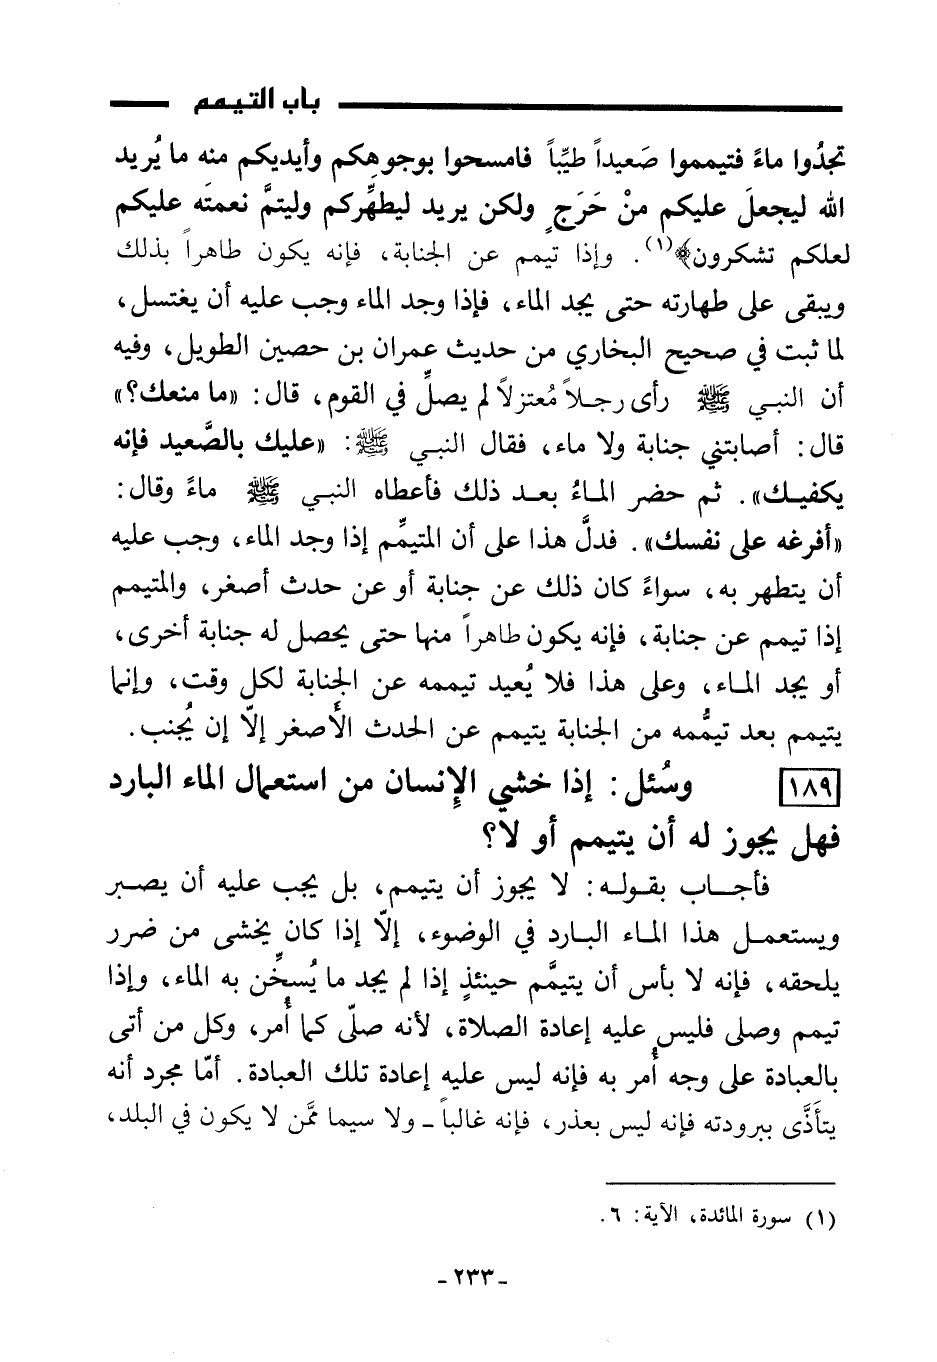 باب التيمم
تجدُوا ماءً فتيمموا صَعيداً طيِّباً فامسحوا بوجوهِكم وأيديكم منه ما يُريد
الله ليجعلَ عليكم منْ حَرَجٍ ولكن يريد ليطهِّركم وليتمَّ نعمتَه عليكم
لعلكم تشكرون﴾(١). وإذا تيمم عن الجنابة، فإنه يكون طاهراً بذلك
ويبقى على طهارته حتى يجد الماء، فإذا وجد الماء وجب عليه أن يغتسل،
لما ثبت في صحيح البخاري من حديث عمران بن حصين الطويل، وفيه
أن النبي ﷺ رأى رجلاً مُعتزلاً لم يصلِّ في القوم، قال: «ما منعك؟»
قال: أصابتني جنابة ولا ماء، فقال النبي ﷺ: «عليك بالصَّعيد فإنه
يكفيك». ثم حضر الماءُ بعد ذلك فأعطاه النبي ﷺ ماءً وقال:
«أفرغه على نفسك». فدلَّ هذا على أن المتيمِّم إذا وجد الماء، وجب عليه
أن يتطهر به، سواءً كان ذلك عن جنابة أو عن حدث أصغر، والمتيمم
إذا تيمم عن جنابة، فإنه يكون طاهراً منها حتى يحصل له جنابة أخرى،
أو يجد الماء، وعلى هذا فلا يُعيد تيممه عن الجنابة لكل وقت، وإنما
يتيمم بعد تيمُّمه من الجنابة يتيمم عن الحدث الأصغر إلّا إن يُجنب.
١٨٩ وسُئل: إذا خشي الإنسان من استعمال الماء البارد
فهل يجوز له أن يتيمم أو لا؟
فأجاب بقوله: لا يجوز أن يتيمم، بل يجب عليه أن يصبر
ويستعمل هذا الماء البارد في الوضوء، إلّا إذا كان يخشى من ضرر
يلحقه، فإنه لا بأس أن يتيمَّم حينئذٍ إذا لم يجد ما يُسخِّن به الماء، وإذا
تيمم وصلى فليس عليه إعادة الصلاة، لأنه صلّى كما أُمر، وكل من أتى
بالعبادة على وجه أُمر به فإنه ليس عليه إعادة تلك العبادة. أمّا مجرد أنه
يتأذَّى ببرودته فإنه ليس بعذر، فإنه غالباً ـ ولا سيما ممَّن لا يكون في البلد،
(١) سورة المائدة، الآية: ٦.
- ٢٣٣ -